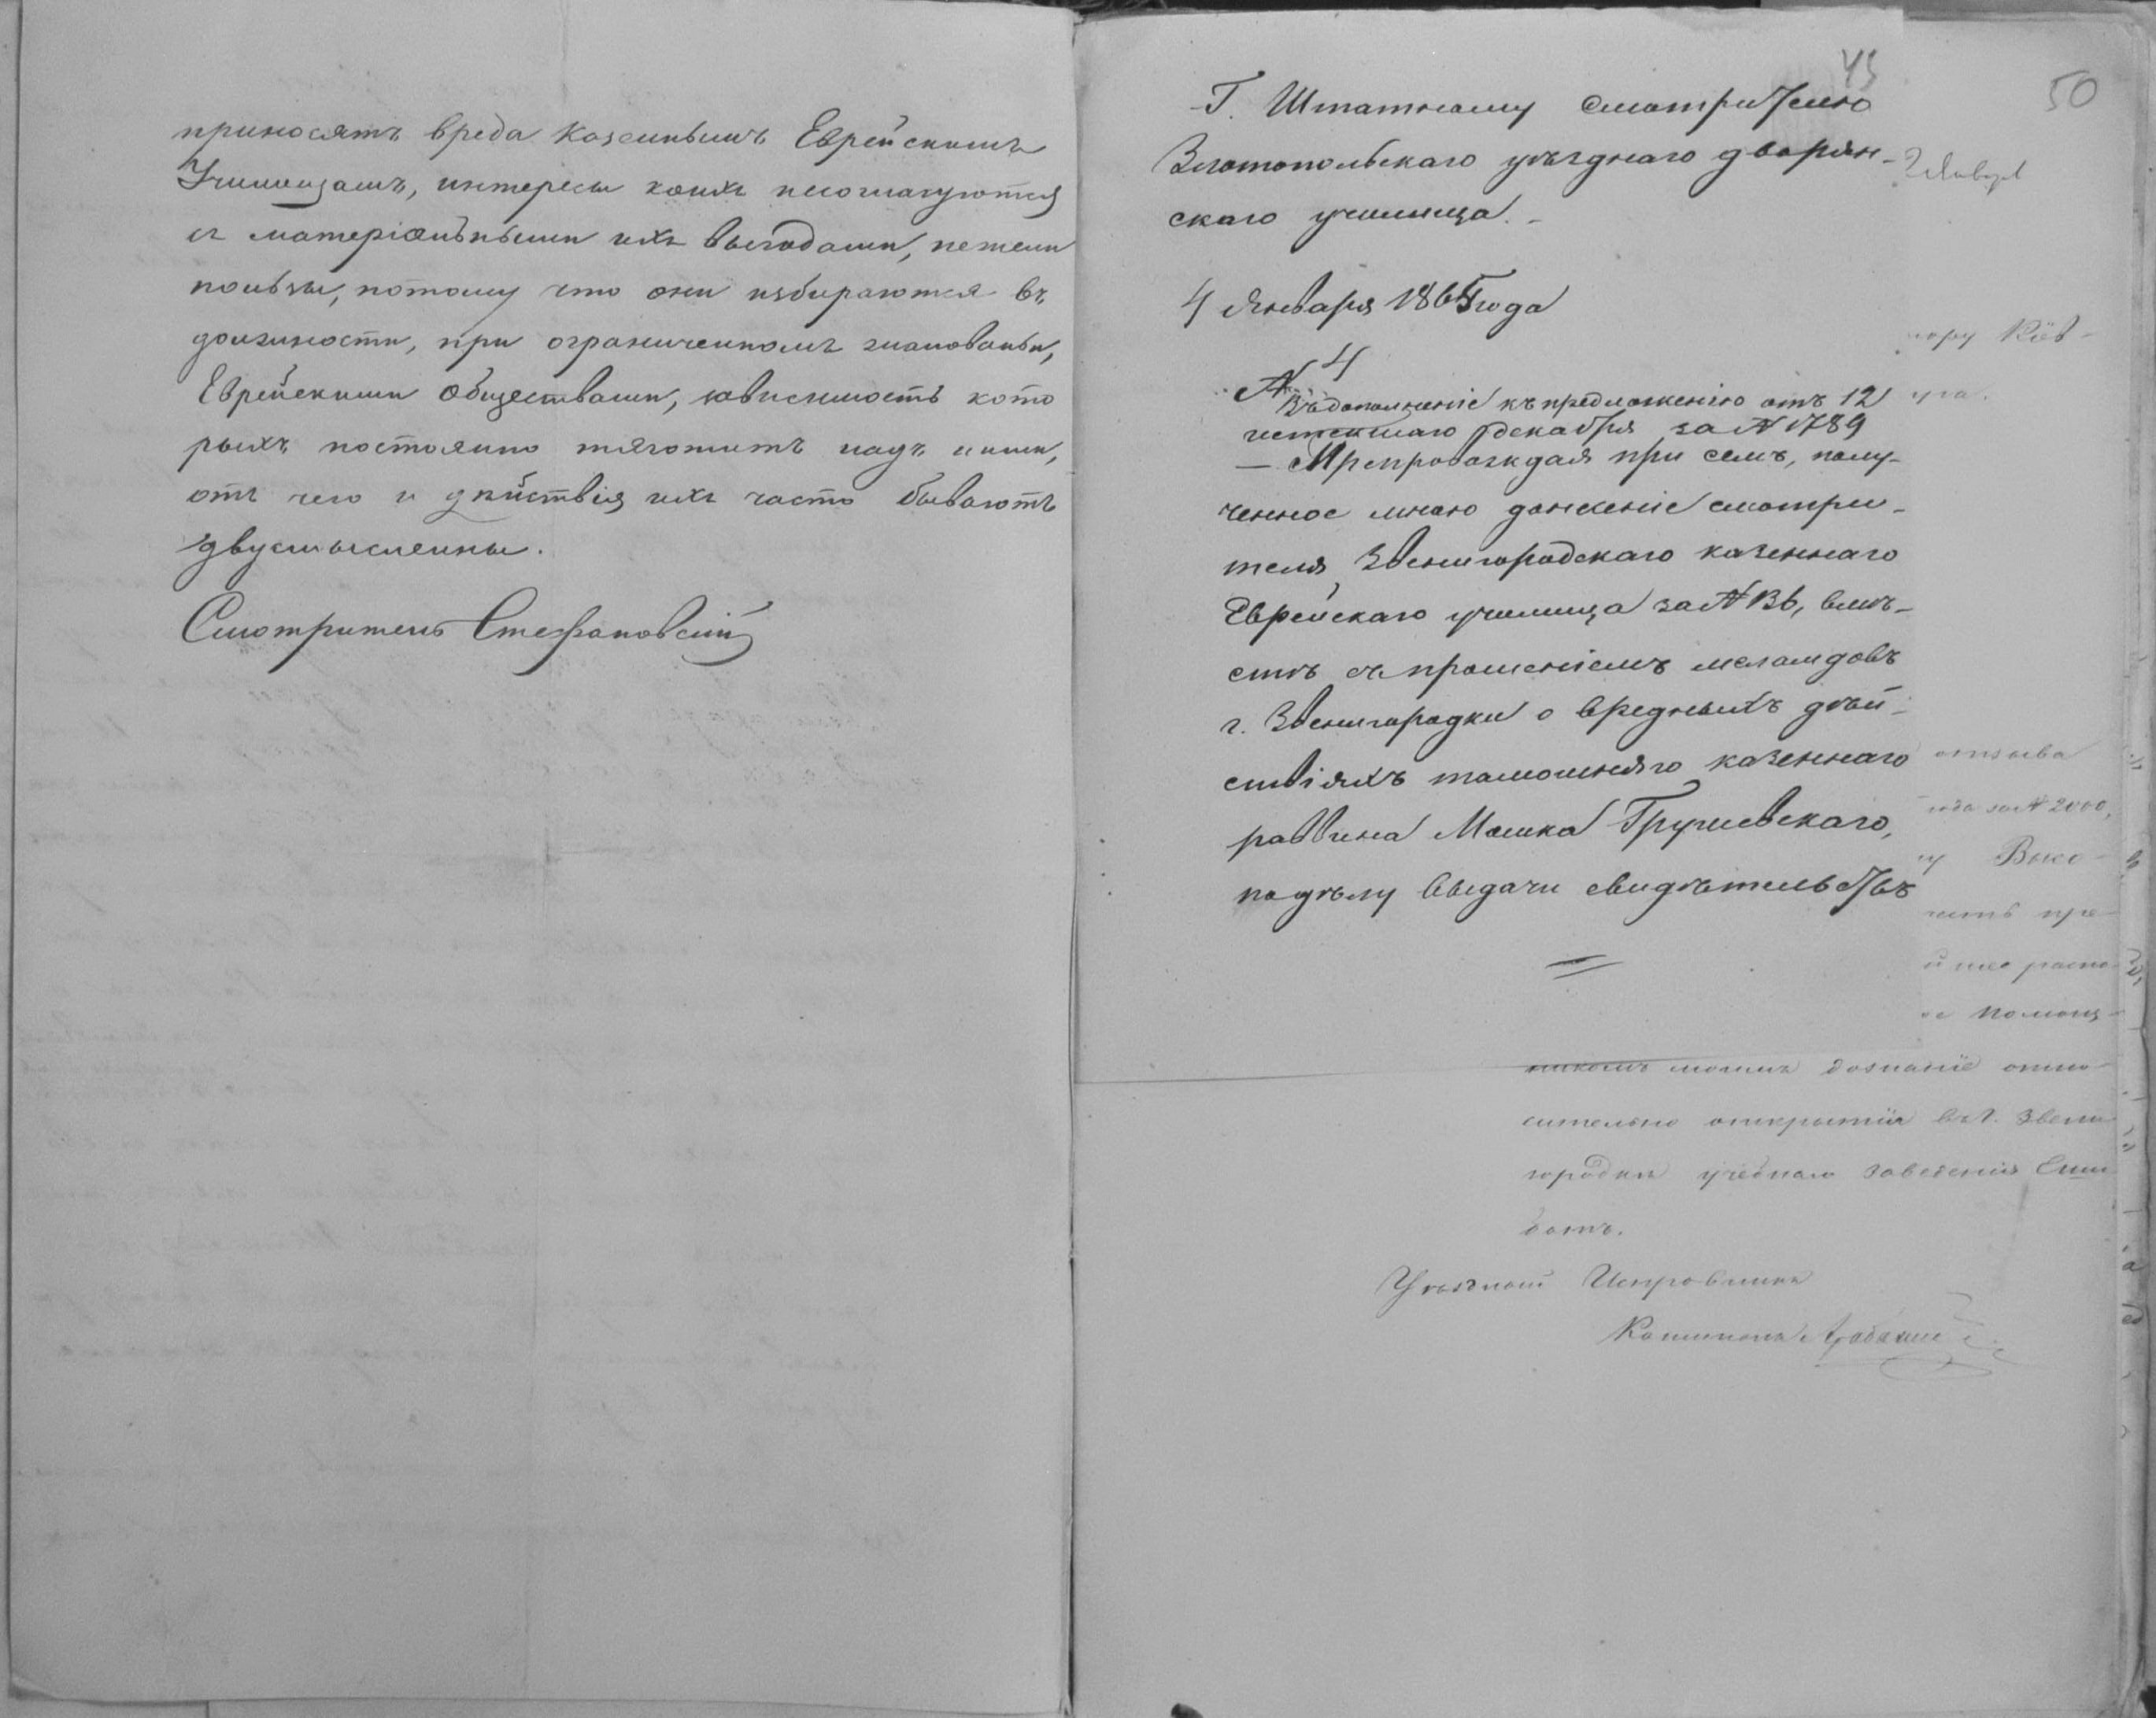 приносятъ вреда Казеннымъ Еврейскимъ
Училищамъ, интересы коихъ несогласуются
съ матеріяльными ихъ выгодами, нежели
пользы, потому что они избираются въ
должности, при ограниченномъ жалованьи,
Еврейскими Обществами, зависимость кото
рыхъ постоянно тяготитъ надъ ними,
отъ чего и дѣйствія ихъ часто бываютъ
двусмысленны.
Смотритель Стефановскій
43
50
Г. Штатному смотрителю
Златопольскаго уѣзднаго дворян-
скаго училища.
2 Января
4 Января 1865 года
№ 4
Въ дополненіе къ предложенію отъ 12
истекшаго декабря за № 1789
— Препровождая при семъ, полу-
ченное мною донесеніе смотри-
теля Звенигородскаго казеннаго
Еврейскаго училища за № 36, вмѣ-
стѣ съ прошеніемъ меламдовъ
г. Звенигородки о вредныхъ дѣй-
ствіяхъ тамошняго казеннаго
раввина Мошка Грушевскаго,
по дѣлу выдачи свидѣтельствъ
нору Кіев-
отзыва
года за № 2000,
у Высо-
чить пре-
помощ-
никомъ моимъ дознаніе отно-
сительно открытія въ г. Звени
городкѣ учебнаго заведенія Еши
ботъ.
Уѣздный Исправникъ
Капитонъ